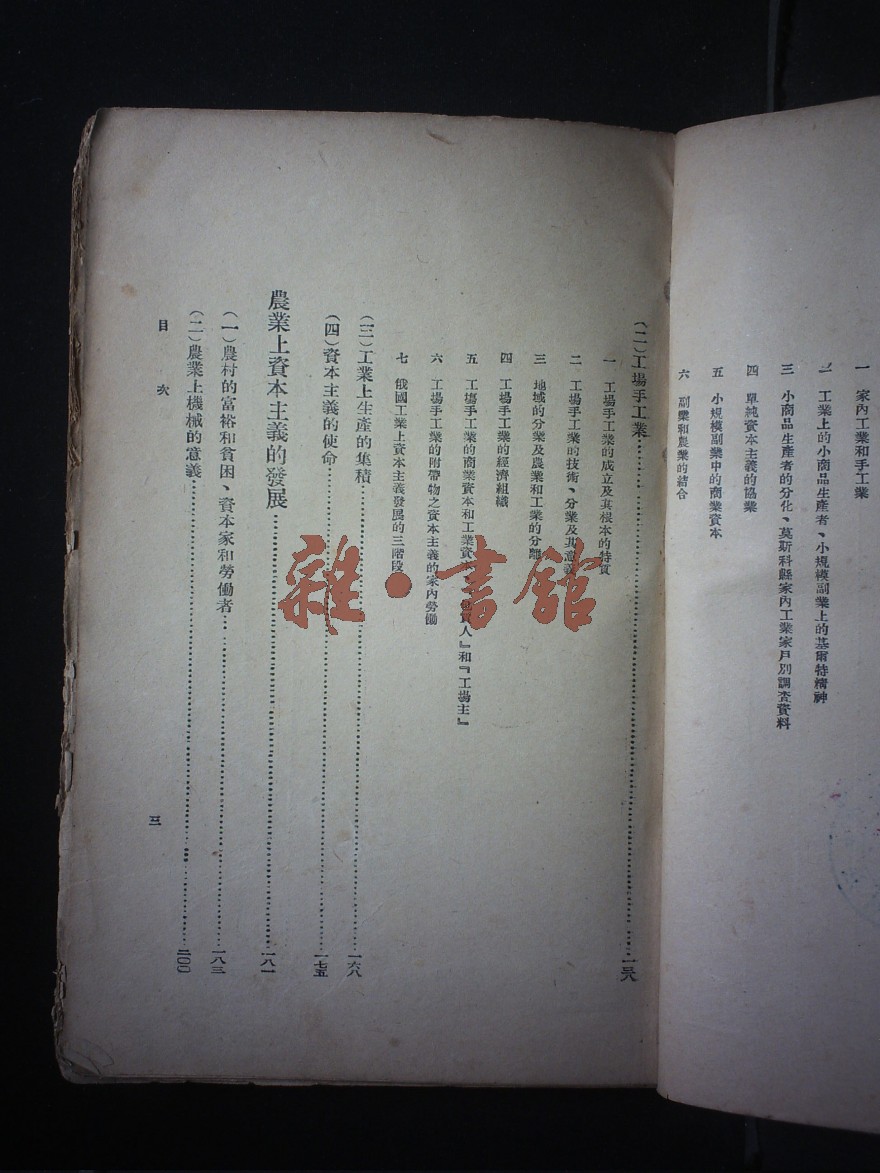 一　家內工業和手工業
二　工業上的小商品生產者、小規模副業上的基爾特精神
三　小商品生產者的分化、莫斯科縣家內工業家戶別調查資料
四　單純資本主義的協業
五　小規模副業中的商業資本
六　副業和農業的結合
(二)工場手工業……一三八
一　工場手工業的成立及其根本的特質
二　工場手工業的技術、分業及其意義
三　地域的分業及農業和工業的分離
四　工場手工業的經濟組織
五　工場手工業的商業資本和工業資本、買人』和『工場主』
六　工場手工業的附帶物之資本主義的家內勞働
七　俄國工業上資本主義發展的三階段
(三)工業上生產的集積……一六八
(四)資本主義的使命……一七五
農業上資本主義的發展……一八一
(一)農村的富裕和貧困、資本家和勞働者……一八三
(二)農業上機械的意義……二〇〇
目次
三
雜·書館